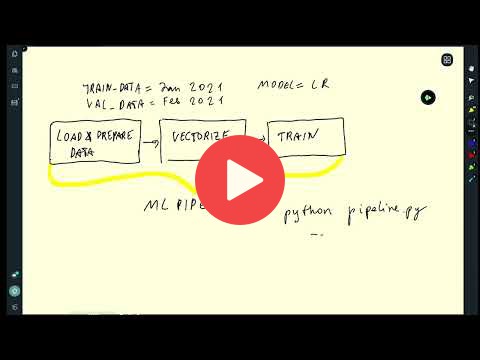 TRAIN_DATA = Jan 2021
VAL_DATA = Feb 2021
MODEL = LR
LOAD & PREPARE
DATA
VECTORIZE
TRAIN
ML
python pipeline.py